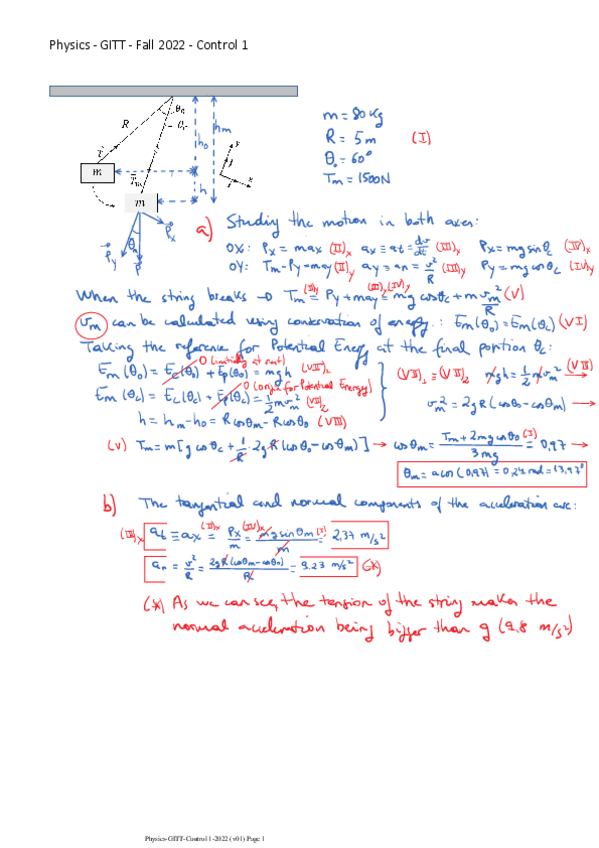 Physics - GITT - Fall 2022 - Control 1
θ₀
R
θc
h₀
hm
T
m
Tm
h
m
y
x
Px
Py
θ
P
m = 80 Kg
R = 5 m (I)
θ₀ = 60°
Tm = 1500N
a) Studing the motion in both axes:
OX: Px = max (II)x ax ≡ at = dv/dt (III)x Px = mg sin θc (IV)x
OY: Tm - Py = may (II)y ay ≡ an = v²/R (III)y Py = mg cos θc (IV)y
When the string breaks → Tm = (II)y Py + may = (III)y (IV)y mg cos θc + m vm²/R (V)
vm can be calculated using conservation of energy: Em(θ₀) = Em(θc) (VI)
Taking the reference for Potential Energy at the final position θc:
Em(θ₀) = Ec(θ₀) + Ep(θ₀) = mgh (VII)1 0 (initially at rest)
Em(θc) = Ec(θc) + Ep(θc) = 1/2 mvm² (VII)2 0 (origin for Potential Energy)
h = hm - h₀ = R cos θm - R cos θ₀ (VIII)
(VII)1 ≡ (VII)2 mgh = 1/2 mvm² (VIII) →
vm² = 2gR (cos θ₀ - cos θm) →
(V) Tm = m [g cos θc + 1/R · 2gR (cos θ₀ - cos θm)] → cos θm = Tm + 2mg cos θ₀ / 3mg (I) = 0,97 →
θm = acos (0,97) = 0,24 rad = 13,97°
b) The tangential and normal components of the acceleration are:
(III)x at ≡ ax = (II)x Px/m = (IV)x mg sin θm / m (I) = 2,37 m/s²
an = v²/R = 2gR (cos θm - cos θ₀) / R = 9.23 m/s² (*)
(*) As we can see, the tension of the string makes the
normal acceleration being bigger than g (9,8 m/s²)
Physics-GITT-Control 1-2022 (v01) Page 1